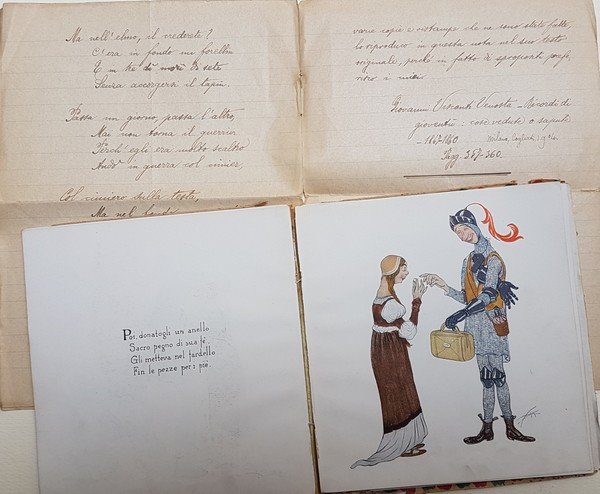 Ma nell'elmo, il credereste?
C'era in fondo un forellin
E in tre dì morì di sete
Senza accorgersi il tapin.
Passa un giorno, passa l'altro,
Mai non torna il guerrier
Perch'egli era molto scaltro
Andò in guerra col cimier.
Col cimiero sulla testa,
Ma nel
varie copie e ristampe che ne sono state fatte,
lo riproduco in questa nota nel suo testo
originale, perchè in fatto di spropositi
Giovanni Visconti Venosta - Ricordi di
gioventù: cose vedute o sapute
- 1847-1860
Pagg. 357-360.
Poi, donatogli un anello
Sacro pegno di sua fè,
Gli metteva nel fardello
Fin le pezze per i piè.